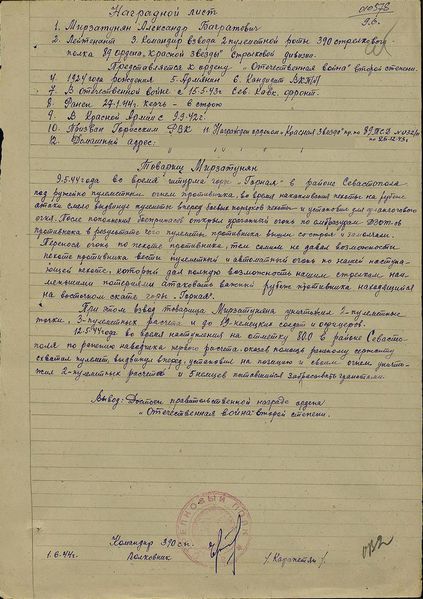 Наградной лист
1. Мирзатунян Александр Багратович
2. Лейтенант 3. Командир взвода 2 пулеметной роты 390 стрелкового
полка 89 ордена "Красной Звезды" Стрелковой дивизии.
Представляется к ордену "Отечественная война" второй степени.
4. 1924 года рождения 5. Армянин 6. Кандидат ВКП/б/
7. В отечественной войне с 15.5.43г. Сев. Кавк. фронт.
8. Ранен 27.1.44г. Керчь - в строю
9. В Красной Армии с 9.9.42г.
10. Призван Горисским РВК 11. Награжден орденом "Красная Звезда" пр. по 89 ТКСД
от 26.12.43г.
12. Домашний адрес:
Товарищ Мирзатунян
9.5.44 года во время штурма горы "Горная" в районе Севастополя
под ружейно пулеметным огнем противника, во время накапливания пехоты на рубеже
атаки смело выдвинул пулеметы вперед боевых порядков пехоты и установил для флангового
огня. После пополнения боеприпасов открыл ураганный огонь по амбразурам ДЗОТ-ов
противника в результате чего пулеметы противника вышли со строя и замолкли.
Перенося огонь по пехоте противника, тем самым не давал возможности
пехоте противника вести пулеметный и автоматный огонь по нашей насту-
пающей пехоте, который дал полную возможность нашим стрелкам, наи-
меньшими потерями атаковать важный рубеж противника находящийся
на восточном скате горы "Горная".
При этом взвод товарища Мирзатуняна уничтожил 2-пулеметные
точки, 3-пулеметных расчета и до 19-немецких солдат и офицеров.
12.5.44 года во время наступления на отметку 80.0 в районе Севасто-
поля по ранению наводчика первого расчета, оказав помощь раненому сержанту
схватил пулемет, выдвинул вперед, установил на позицию и своим огнем уничто-
жил 2-пулеметных расчетов и 5 немцев пытавшихся забрасывать гранатами.
Вывод: Достоин правительственной награде ордена
"Отечественная война" второй степени.
Командир 390 сп.
Полковник / Карапетян /.
1.6.44г.